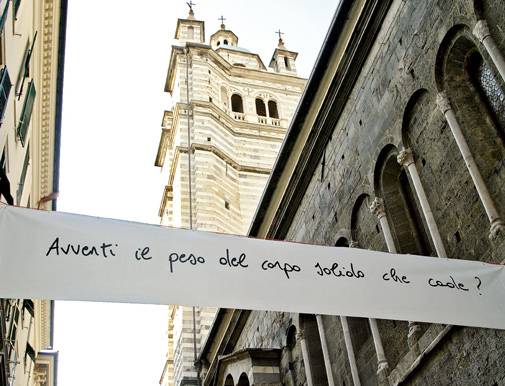 Avverti il peso del corpo solido che cade?